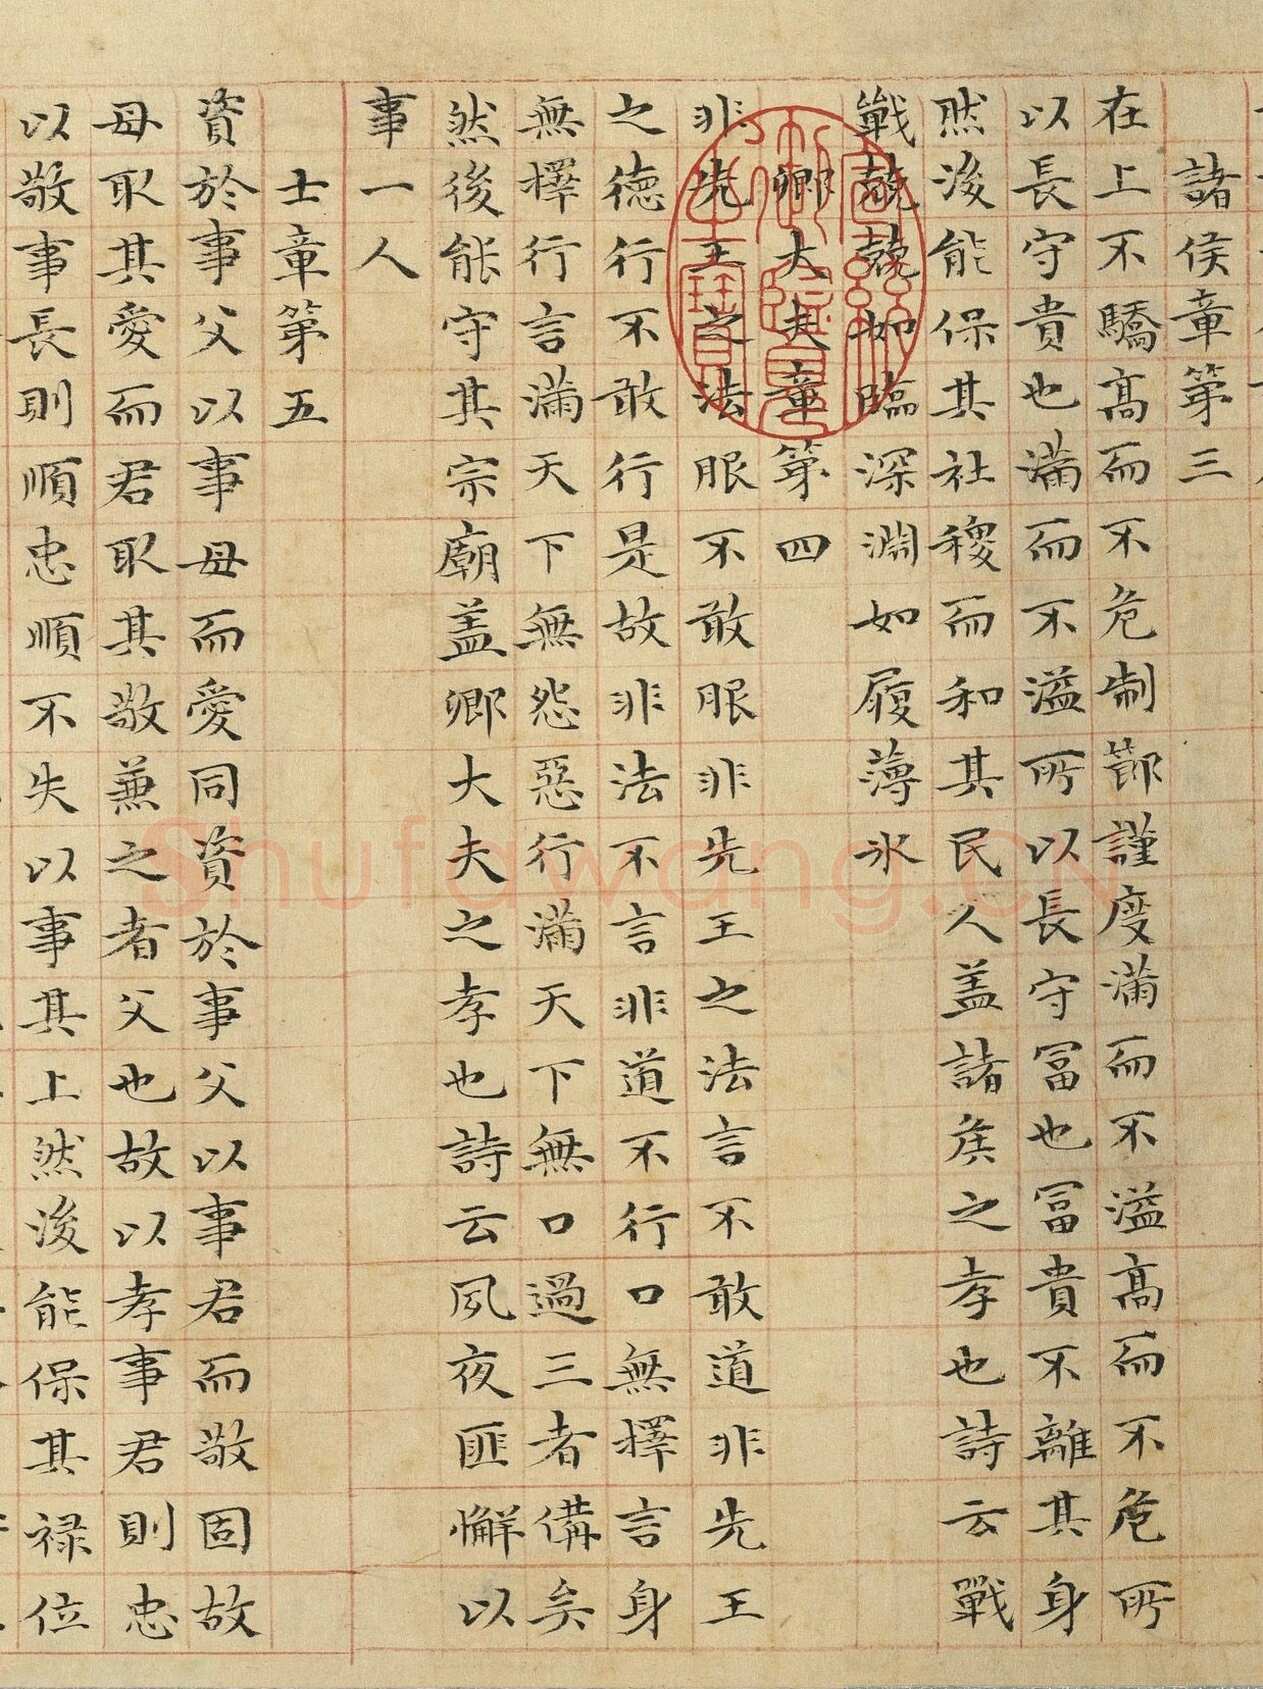 諸侯章第三
在上不驕高而不危制節謹度滿而不溢高而不危所
以長守貴也滿而不溢所以長守冨也冨貴不離其身
然後能保其社稷而和其民人盖諸侯之孝也詩云戰
戰兢兢如臨深淵如履薄氷
卿大夫章第四
非先王之法服不敢服非先王之法言不敢道非先王
之德行不敢行是故非法不言非道不行口無擇言身
無擇行言滿天下無怨惡行滿天下無口過三者備矣
然後能守其宗廟盖卿大夫之孝也詩云夙夜匪懈以
事一人
士章第五
資於事父以事母而愛同資於事父以事君而敬固故
母取其愛而君取其敬兼之者父也故以孝事君則忠
以敬事長則順忠順不失以事其上然後能保其禄位
Shufawang.CN